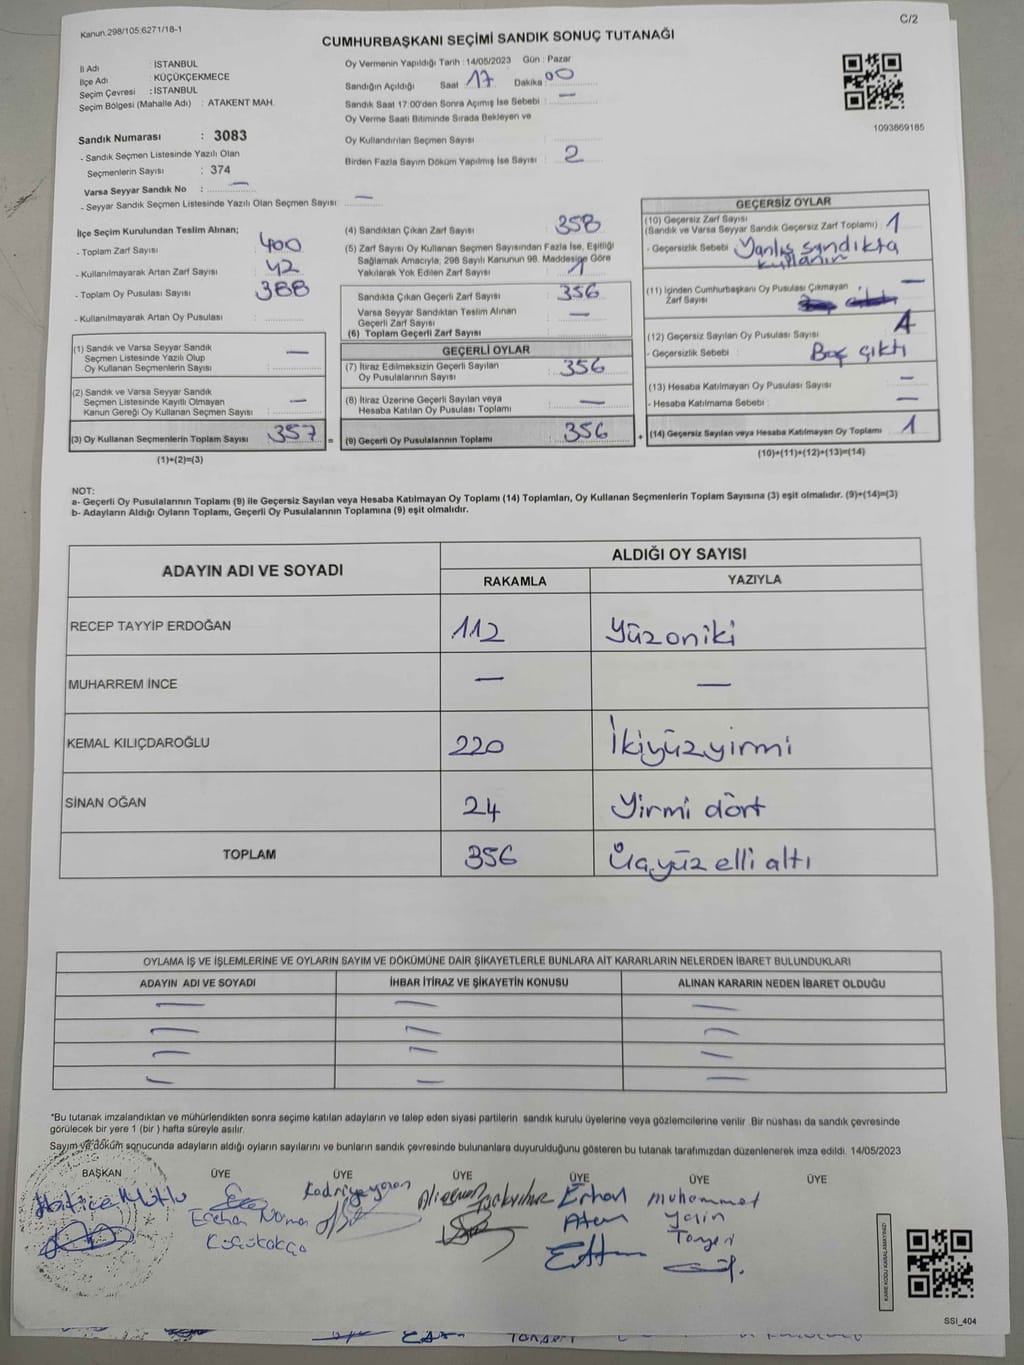 Kanun.298/105;6271/18-1
C/2
CUMHURBAŞKANI SEÇİMİ SANDIK SONUÇ TUTANAĞI
İl Adı : İSTANBUL
İlçe Adı : KÜÇÜKÇEKMECE
Seçim Çevresi : İSTANBUL
Seçim Bölgesi (Mahalle Adı) : ATAKENT MAH.
Sandık Numarası : 3083
- Sandık Seçmen Listesinde Yazılı Olan
Seçmenlerin Sayısı : 374
Varsa Seyyar Sandık No : —
- Seyyar Sandık Seçmen Listesinde Yazılı Olan Seçmen Sayısı —
Oy Vermenin Yapıldığı Tarih : 14/05/2023 Gün : Pazar
Sandığın Açıldığı Saat 17 Dakika 00
Sandık Saat 17:00'den Sonra Açımış İse Sebebi : —
Oy Verme Saati Bitiminde Sırada Bekleyen ve
Oy Kullandırılan Seçmen Sayısı :
Birden Fazla Sayım Döküm Yapılmış İse Sayısı : 2
1093869185
İlçe Seçim Kurulundan Teslim Alınan;
- Toplam Zarf Sayısı : 400
- Kullanılmayarak Artan Zarf Sayısı : 42
- Toplam Oy Pusulası Sayısı : 388
- Kullanılmayarak Artan Oy Pusulası :
(1) Sandık ve Varsa Seyyar Sandık
Seçmen Listesinde Yazılı Olup
Oy Kullanan Seçmenlerin Sayısı : —
(2) Sandık ve Varsa Seyyar Sandık
Seçmen Listesinde Kayıtlı Olmayan
Kanun Gereği Oy Kullanan Seçmen Sayısı : —
(3) Oy Kullanan Seçmenlerin Toplam Sayısı 357 =
(1)+(2)=(3)
(4) Sandıktan Çıkan Zarf Sayısı : 358
(5) Zarf Sayısı Oy Kullanan Seçmen Sayısından Fazla İse, Eşitliği
Sağlamak Amacıyla; 298 Sayılı Kanunun 98. Maddesine Göre
Yakılarak Yok Edilen Zarf Sayısı : 1
Sandıkta Çıkan Geçerli Zarf Sayısı : 356
Varsa Seyyar Sandıktan Teslim Alınan
Geçerli Zarf Sayısı : —
(6) Toplam Geçerli Zarf Sayısı :
GEÇERLİ OYLAR
(7) İtiraz Edilmeksizin Geçerli Sayılan
Oy Pusulalarının Sayısı : 356
(8) İtiraz Üzerine Geçerli Sayılan veya
Hesaba Katılan Oy Pusulası Toplamı : —
(9) Geçerli Oy Pusulalarının Toplamı : 356 +
GEÇERSİZ OYLAR
(10) Geçersiz Zarf Sayısı
(Sandık ve Varsa Seyyar Sandık Geçersiz Zarf Toplamı) : 1
- Geçersizlik Sebebi : Yanlış sandıkta
kullanın
(11) İçinden Cumhurbaşkanı Oy Pusulası Çıkmayan
Zarf Sayısı —
(12) Geçersiz Sayılan Oy Pusulası Sayısı
- Geçersizlik Sebebi : Boş çıktı
(13) Hesaba Katılmayan Oy Pusulası Sayısı : —
- Hesaba Katılmama Sebebi : —
(14) Geçersiz Sayılan veya Hesaba Katılmayan Oy Toplamı : 1
(10)+(11)+(12)+(13)=(14)
NOT:
a- Geçerli Oy Pusulalarının Toplamı (9) ile Geçersiz Sayılan veya Hesaba Katılmayan Oy Toplamı (14) Toplamları, Oy Kullanan Seçmenlerin Toplam Sayısına (3) eşit olmalıdır. (9)+(14)=(3)
b- Adayların Aldığı Oyların Toplamı, Geçerli Oy Pusulalarının Toplamına (9) eşit olmalıdır.
ADAYIN ADI VE SOYADI
ALDIĞI OY SAYISI
RAKAMLA YAZIYLA
RECEP TAYYİP ERDOĞAN 112 Yüzoniki
MUHARREM İNCE — —
KEMAL KILIÇDAROĞLU 220 İkiyüzyirmi
SİNAN OĞAN 24 Yirmi dört
TOPLAM 356 Üçyüz elli altı
OYLAMA İŞ VE İŞLEMLERİNE VE OYLARIN SAYIM VE DÖKÜMÜNE DAİR ŞİKAYETLERLE BUNLARA AİT KARARLARIN NELERDEN İBARET BULUNDUKLARI
ADAYIN ADI VE SOYADI İHBAR İTİRAZ VE ŞİKAYETİN KONUSU ALINAN KARARIN NEDEN İBARET OLDUĞU
— — —
— — —
— — —
— — —
*Bu tutanak imzalandıktan ve mühürlendikten sonra seçime katılan adayların ve talep eden siyasi partilerin sandık kurulu üyelerine veya gözlemcilerine verilir. Bir nüshası da sandık çevresinde
görülecek bir yere 1 (bir ) hafta süreyle asılır.
Sayım ve döküm sonucunda adayların aldığı oyların sayılarını ve bunların sandık çevresinde bulunanlara duyurulduğunu gösteren bu tutanak tarafımızdan düzenlenerek imza edildi. 14/05/2023
BAŞKAN ÜYE ÜYE ÜYE ÜYE ÜYE ÜYE
Hatice Mutlu
Kadriye
Erhan
muhammet
yasin
KARE KODU KARALAMAYINIZ!
SSI_404